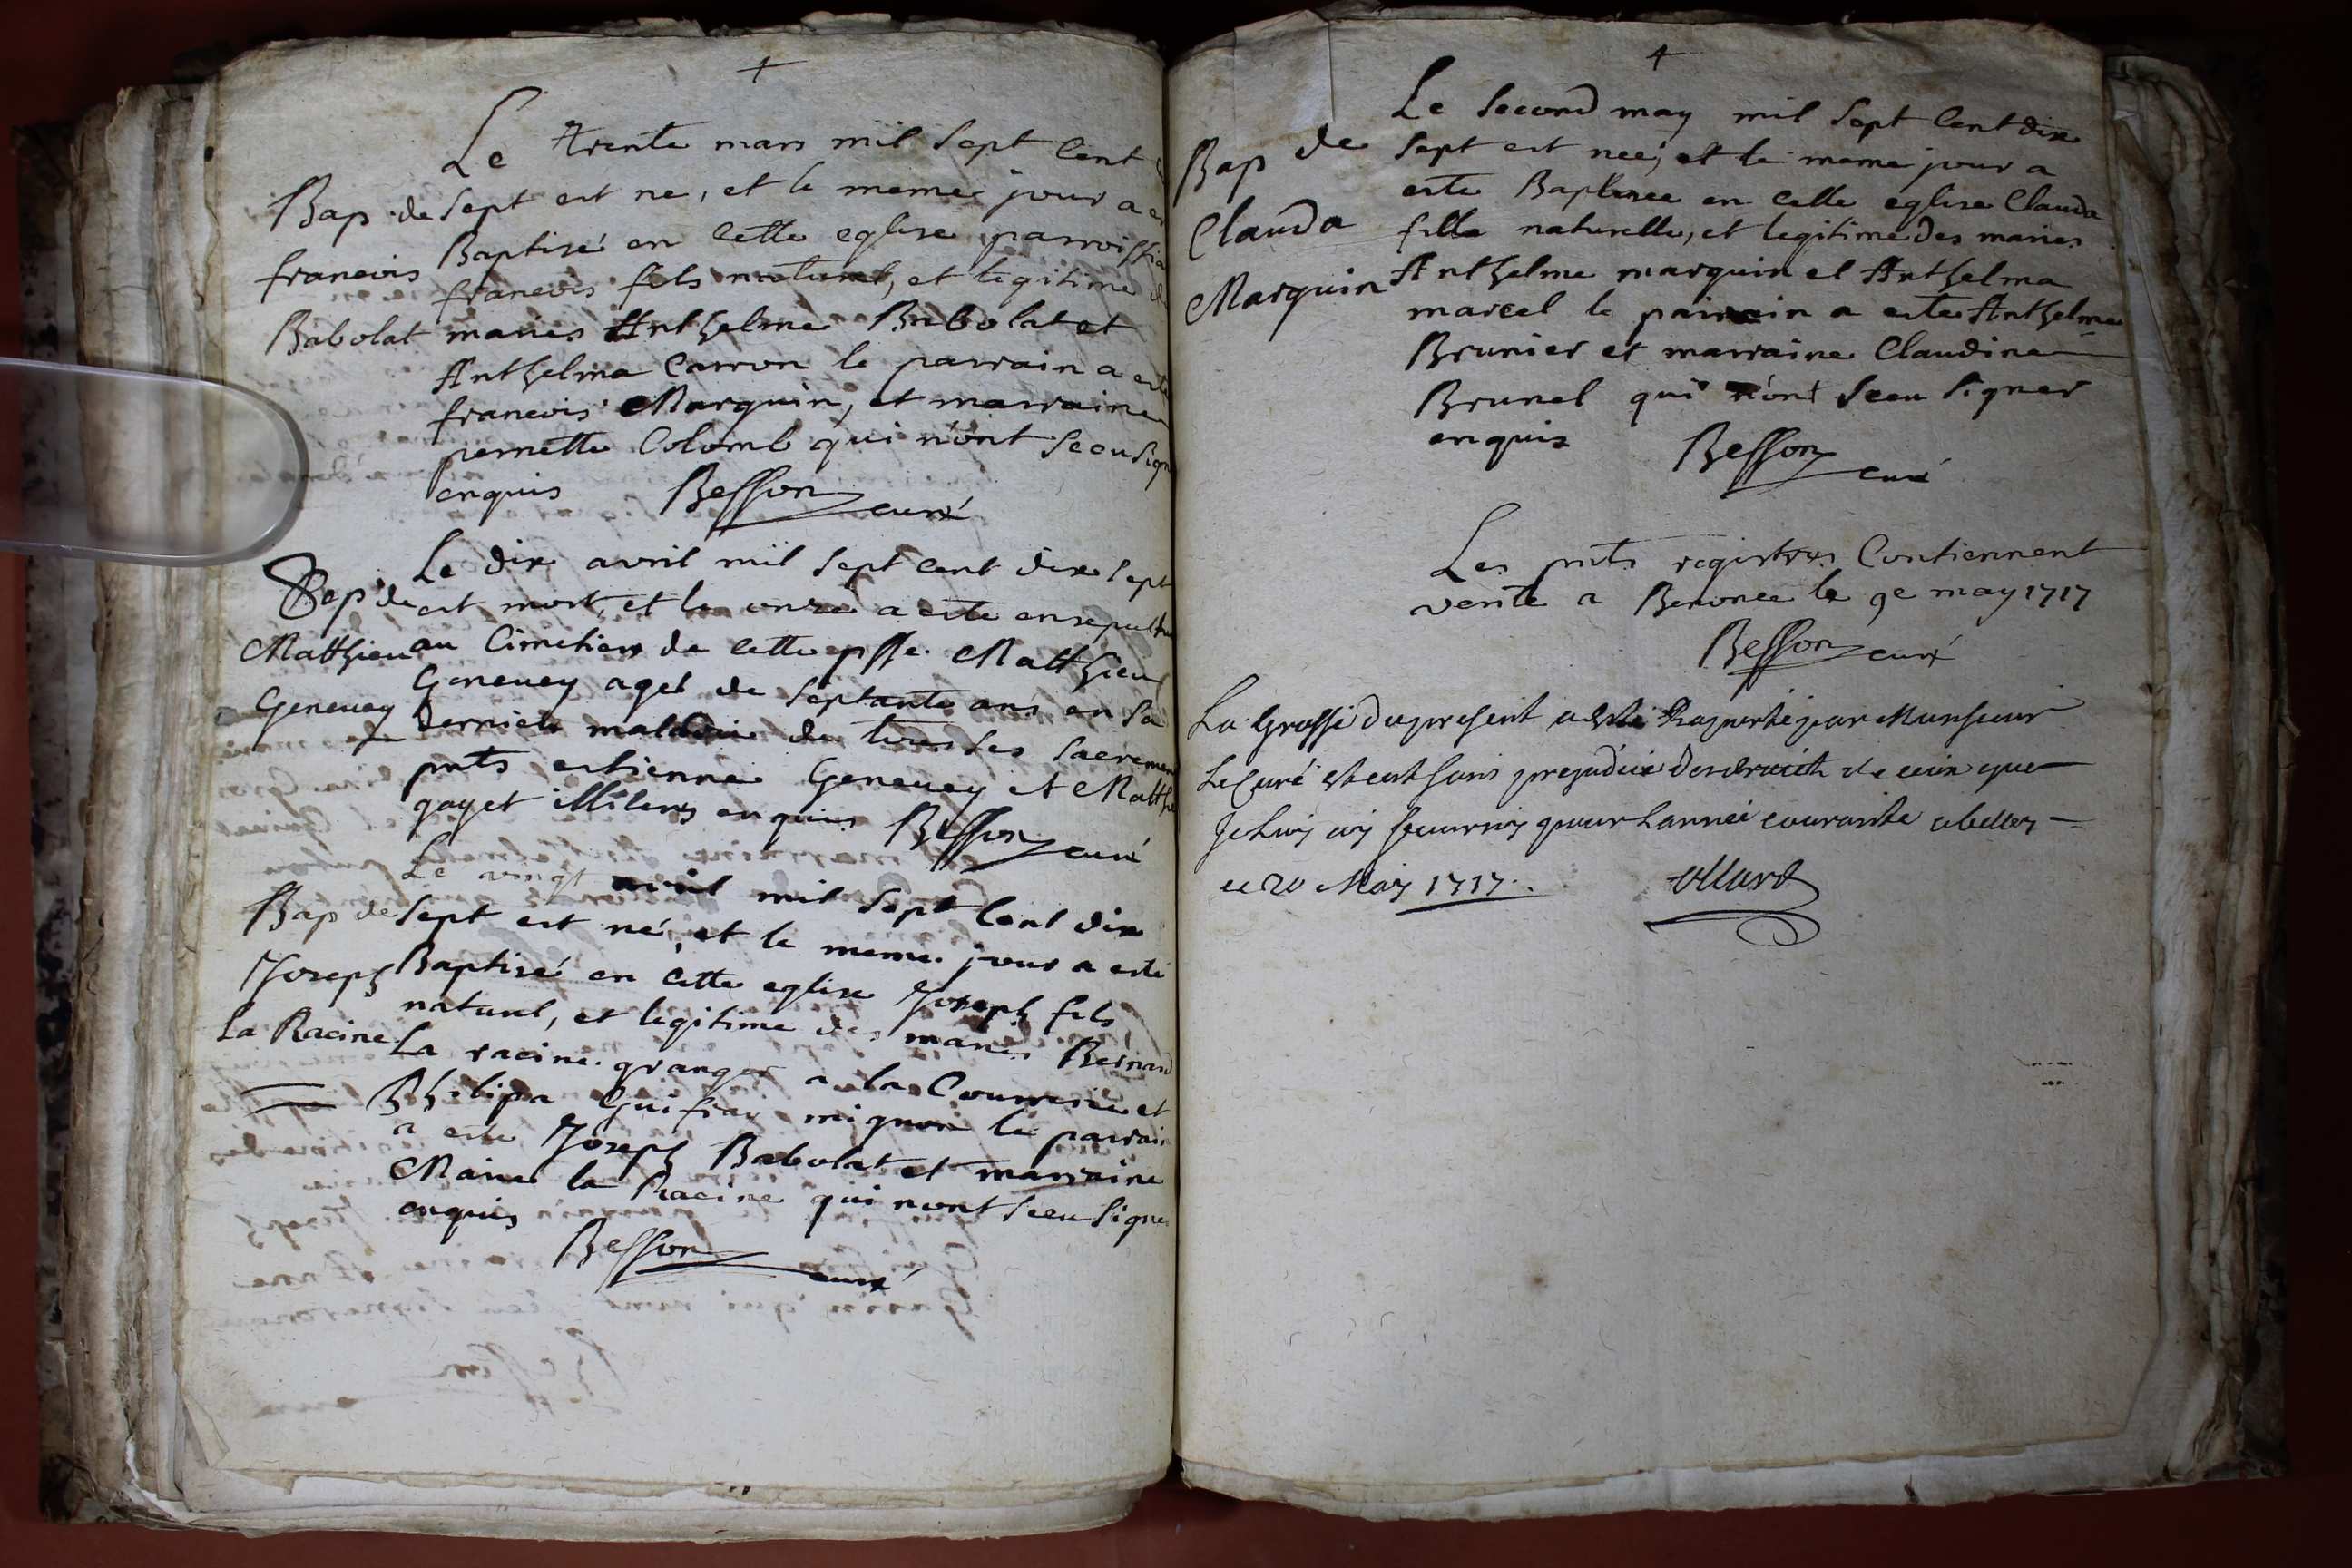 Le trente mars mil sept cent
Bap de sept est ne, et le meme jour a
francois Baptisé en cette eglise parroissia
francois fils naturel, et legitime
Babolat maries Anthelme Babolat et
Anthelma Carron le parrain a este
francois Marquin, et marraine
pernette Colomb qui n'ont sceu sign
enquis Besson curé
Le dix avril mil sept cent dix sept
Sep de est mort, et le onze a este ensepultu
Matthieu au Cimetiere de cette psse. Matthieu
Geneuey Geneuey aget de septante ans en sa
derniere maladie de tous ses sacremen
pnts estienne Geneuey et Matthi
gayet illiteres enquis Besson curé
Le vingt avril mil sept cent dix
Bap de sept est né, et le meme jour a esté
Joseph Baptisé en cette eglise Joseph fils
naturel, et legitime des maries Bernard
La Racine La racine granger a la Courrerie et
Philipa Guifrai mignon le parrain
a este Joseph Babolat et marraine
Marie la Racine qui n'ont sceu signer
enquis
Besson curé
Le second may mil sept cent dix
Bap de sept est neé, et le meme jour a
este Baptisee en cette eglise Clauda
Clauda fille naturelle, et legitime des maries
Marquin Anthelme marquin et Anthelma
marcel le pairrain a este Anthelme
Brunier et marraine Claudine
Brunel qui n'ont sceu signer
enquis Besson curé
Les pnts registres Contiennent
verite a Benonce le 9e may 1717
Besson curé
La Grosse du present a esté Raporté par Monsieur
Le Curé et est sans prejudice des droicts de ceux que
Je luy ay fourny pour Lannée courante a belley
ce 20 May 1717. Allard